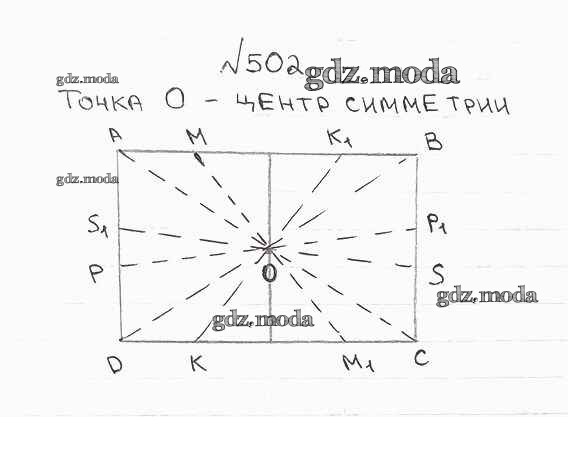 №502 gdz.moda
gdz.moda
Точка О - центр симметрии
A M K₁ B
gdz.moda
S₁ P₁
P O S
gdz.moda
gdz.moda
D K M₁ C